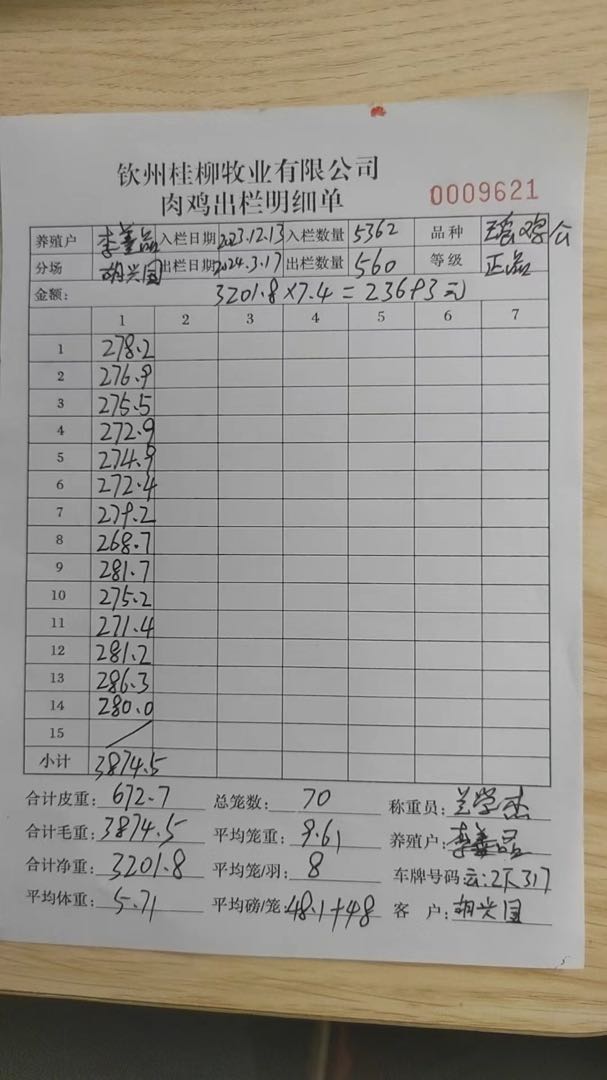 钦州桂柳牧业有限公司
肉鸡出栏明细单
0009621
养殖户 李善品 入栏日期 2023.12.13 入栏数量 5362 品种 瑶鸡公
分场 胡兴国 出栏日期 2024.3.17 出栏数量 560 等级 正品
金额: 3201.8×7.4=23693元
1 2 3 4 5 6 7
1 278.2
2 276.9
3 275.5
4 272.9
5 274.9
6 272.4
7 279.2
8 268.7
9 281.7
10 275.2
11 271.4
12 281.2
13 286.3
14 280.0
15
小计 3874.5
合计皮重: 672.7 总笼数: 70 称重员: 兰学杰
合计毛重: 3874.5 平均笼重: 9.61 养殖户: 李善品
合计净重: 3201.8 平均笼/羽: 8 车牌号码:
平均体重: 5.71 平均磅/笼: 48.1+48 客 户: 胡兴国